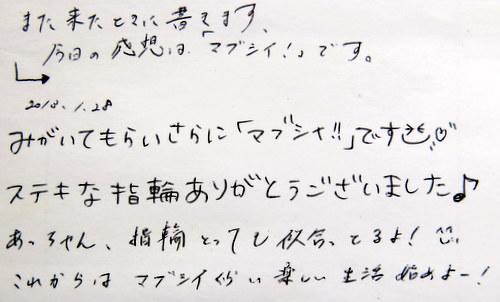 また来たときに書きます、
今日の感想は「マブシイ!」です。
2010.1.28
みがいてもらいさらに「マブシイ!!」です♡
ステキな指輪ありがとうございました♪
あっちゃん、指輪とっても似合っとるよ!
これからは マブシイくらい楽しい生活始めよー!